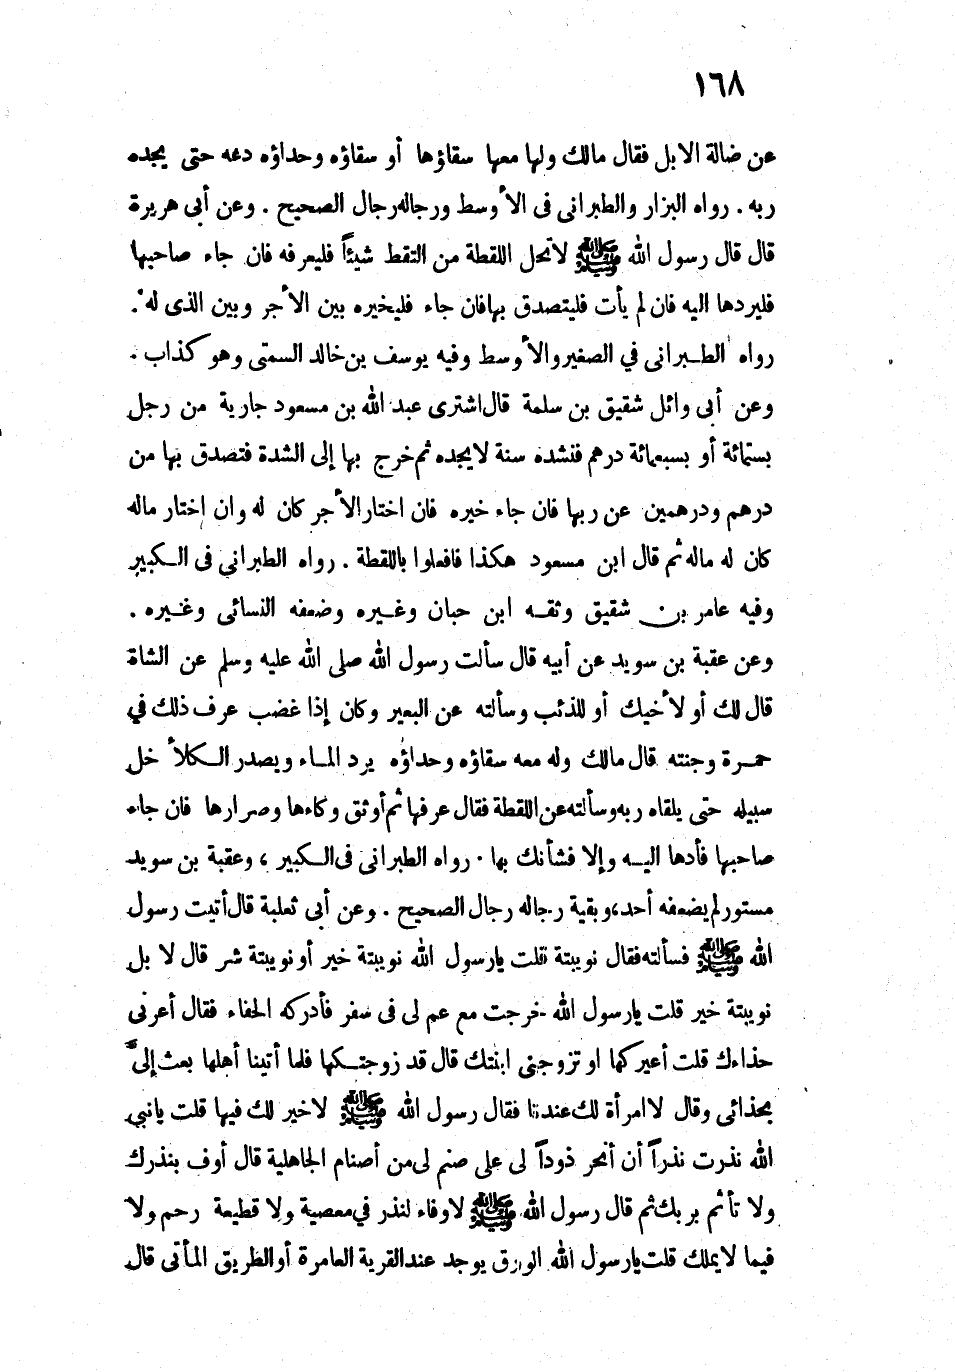 ١٦٨
عن ضالة الابل فقال مالك ولها معها سقاؤها أو سقاؤه وحداؤه دعه حتى يجده
ربه . رواه البزار والطبرانى فى الأوسط ورجاله رجال الصحيح . وعن أبى هريرة
قال قال رسول الله ﷺ لاتحل اللقطة من التقط شيئاً فليعرفه فان جاء صاحبها
فليردها اليه فان لم يأت فليتصدق بها فان جاء فليخيره بين الأجر وبين الذى له .
رواه الطبرانى في الصغير والأوسط وفيه يوسف بن خالد السمتى وهو كذاب .
وعن أبى وائل شقيق بن سلمة قال اشترى عبد الله بن مسعود جارية من رجل
بستمائة أو بسبعمائة درهم فنشده سنة لايجده ثم خرج بها إلى الشدة فتصدق بها من
درهم ودرهمين عن ربها فان جاء خيره فان اختار الأجر كان له وان اختار ماله
كان له ماله ثم قال ابن مسعود هكذا فافعلوا باللقطة . رواه الطبرانى فى الكبير
وفيه عامر بن شقيق وثقه ابن حبان وغيره وضعفه النسائى وغيره .
وعن عقبة بن سويد عن أبيه قال سألت رسول الله صلى الله عليه وسلم عن الشاة
قال لك أو لأخيك أو للذئب وسألته عن البعير وكان إذا غضب عرف ذلك في
حمرة وجنته قال مالك وله معه سقاؤه وحداؤه يرد الماء ويصدر الكلأ خل
سبيله حتى يلقاه ربه وسألته عن اللقطة فقال عرفها ثم أوثق وكاءها وصرارها فان جاء
صاحبها فأدها اليه وإلا فشأنك بها . رواه الطبرانى فى الكبير ، وعقبة بن سويد
مستور لم يضعفه أحد ، وبقية رجاله رجال الصحيح . وعن أبى ثعلبة قال أتيت رسول
الله ﷺ فسألته فقال نويبتة قلت يارسول الله نويبتة خير أو نويبتة شر قال لا بل
نويبتة خير قلت يارسول الله خرجت مع عم لى فى سفر فأدركه الحفاء فقال أعرنى
حذاءك قلت أعيركها او تزوجنى ابنتك قال قد زوجتكها فلما أتينا أهلها بعث إلىّ
بحذائى وقال لا امرأة لك عندنا فقال رسول الله ﷺ لاخير لك فيها قلت يانبى
الله نذرت نذراً أن أنحر ذوداً لى على صنم لى من أصنام الجاهلية قال أوف بنذرك
ولا تأثم بربك ثم قال رسول الله ﷺ لاوفاء لنذر في معصية ولا قطيعة رحم ولا
فيما لايملك قلت يارسول الله الورق يوجد عند القرية العامرة أو الطريق المأتى قال